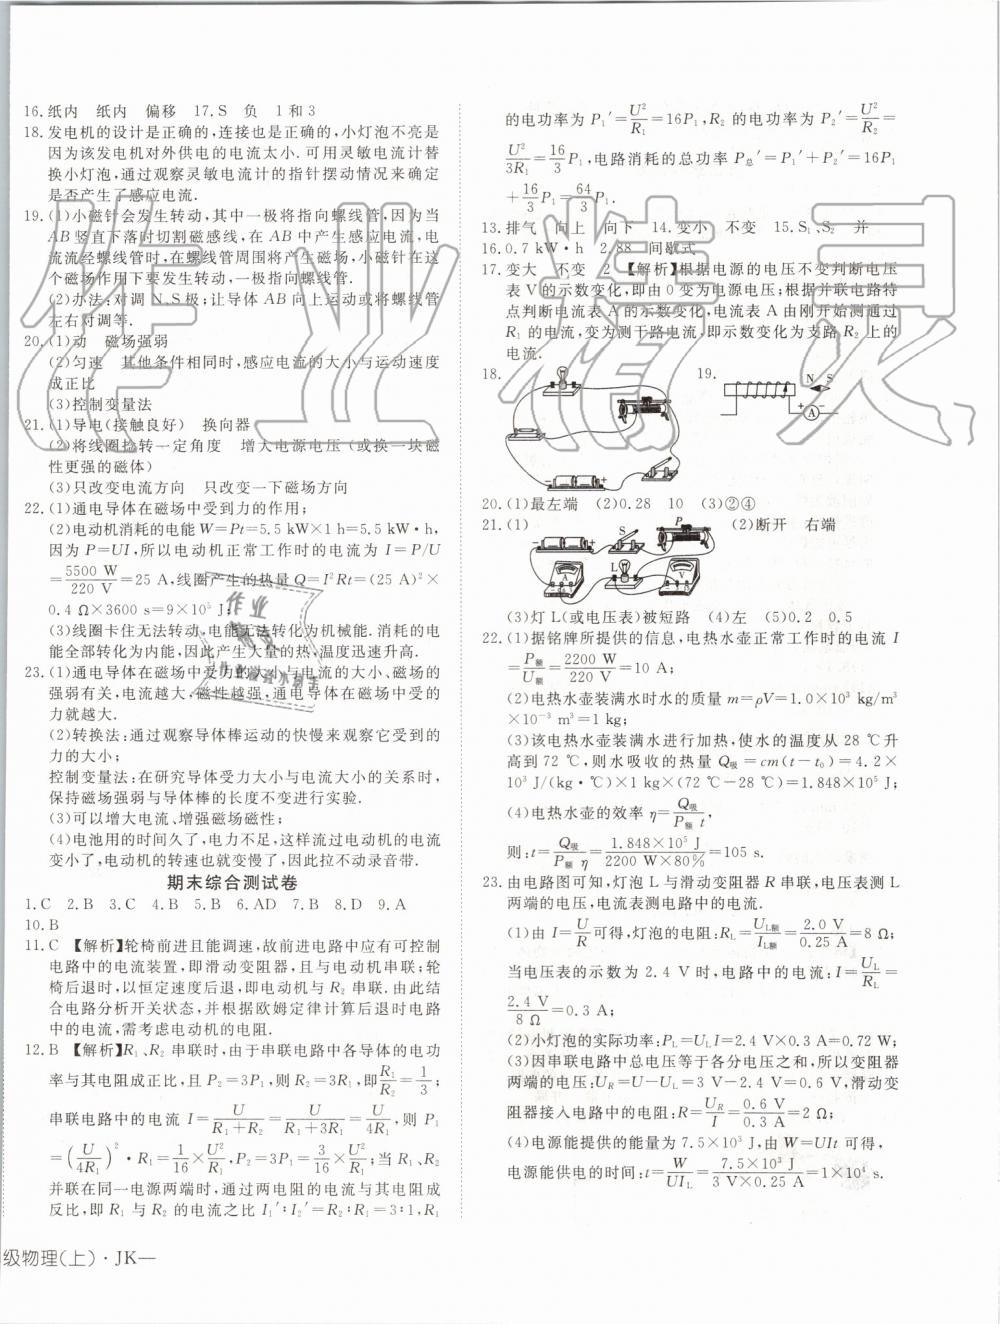 16.纸内　纸内　偏移　17.S　负　1和3
18.发电机的设计是正确的,连接也是正确的,小灯泡不亮是
因为该发电机对外供电的电流太小.可用灵敏电流计替
换小灯泡,通过观察灵敏电流计的指针摆动情况来确定
是否产生了感应电流.
19.(1)小磁针会发生转动,其中一极将指向螺线管,因为当
AB竖直下落时切割磁感线,在AB中产生感应电流,电
流流经螺线管时,在螺线管周围将产生磁场,小磁针在这
个磁场作用下要发生转动,一极指向螺线管.
(2)办法:对调N、S极;让导体AB向上运动或将螺线管
左右对调等.
20.(1)动　磁场强弱
(2)匀速　其他条件相同时,感应电流的大小与运动速度
成正比
(3)控制变量法
21.(1)导电(接触良好)　换向器
(2)将线圈拨转一定角度　增大电源电压(或换一块磁
性更强的磁体)
(3)只改变电流方向　只改变一下磁场方向
22.(1)通电导体在磁场中受到力的作用;
(2)电动机消耗的电能W=Pt=5.5 kW×1 h=5.5 kW·h,
因为P=UI,所以电动机正常工作时的电流为I=P/U
=5500 W/220 V=25 A,线圈产生的热量Q=I²Rt=(25 A)²×
0.4 Ω×3600 s=9×10⁵ J;
(3)线圈卡住无法转动,电能无法转化为机械能.消耗的电
能全部转化为内能,因此产生大量的热,温度迅速升高.
23.(1)通电导体在磁场中受力的大小与电流大小、磁场的
强弱有关,电流越大,磁性越强,通电导体在磁场中受的
力就越大.
(2)转换法:通过观察导体棒运动的快慢来观察它受到的
力的大小;
控制变量法:在研究导体受力大小与电流大小的关系时,
保持磁场强弱与导体棒的长度不变进行实验.
(3)可以增大电流、增强磁场磁性;
(4)电池用的时间久了,电力不足,这样流过电动机的电流
变小了,电动机的转速也就变慢了,因此拉不动录音带.
期末综合测试卷
1.C　2.B　3.C　4.B　5.B　6.AD　7.B　8.D　9.A
10.B
11.C　【解析】轮椅前进且能调速,故前进电路中应有可控制
电路中的电流装置,即滑动变阻器,且与电动机串联;轮
椅后退时,以恒定速度后退,即电动机与R2串联.由此结
合电路分析开关状态,并根据欧姆定律计算后退时电路
中的电流,需考虑电动机的电阻.
12.B　【解析】R1、R2串联时,由于串联电路中各导体的电功
率与其电阻成正比,且P2=3P1,则R2=3R1,即R1/R2=1/3;
串联电路中的电流I=U/(R1+R2)=U/(R1+3R1)=U/4R1,则P1
=(U/4R1)²·R1=1/16×U²/R1,P2=3P1=3/16×U²/R1;当R1、R2
并联在同一电源两端时,通过两电阻的电流与其电阻成
反比,即R1与R2的电流之比I1′∶I2′=R2∶R1=3∶1,R1
级物理(上)·JK—
的电功率为P1′=U²/R1=16P1,R2的电功率为P2′=U²/R2=
U²/3R1=16/3P1,电路消耗的总功率P总′=P1′+P2′=16P1
+16/3P1=64/3P1.
13.排气　向上　向下　14.变小　不变　15.S1、S2　并
16.0.7 kW·h　2.88　间歇式
17.变大　不变　2　【解析】根据电源的电压不变判断电压
表V的示数变化,即由0变为电源电压;根据并联电路特
点判断电流表A的示数变化,电流表A由刚开始测通过
R1的电流,变为测干路电流,即示数变化为支路R2上的
电流.
18.　19.
N　S
A
20.(1)最左端　(2)0.28　10　(3)②④
21.(1)　(2)断开　右端
S　P
A　L　V
(3)灯L(或电压表)被短路　(4)左　(5)0.2　0.5
22.(1)据铭牌所提供的信息,电热水壶正常工作时的电流I
=P额/U额=2200 W/220 V=10 A;
(2)电热水壶装满水时水的质量m=ρV=1.0×10³ kg/m³
×10⁻³ m³=1 kg;
(3)该电热水壶装满水进行加热,使水的温度从28 ℃升
高到72 ℃,则水吸收的热量Q吸=cm(t-t0)=4.2×
10³ J/(kg·℃)×1 kg×(72 ℃-28 ℃)=1.848×10⁵ J;
(4)电热水壶的效率η=Q吸/P额t,
则:t=Q吸/P额η=1.848×10⁵ J/2200 W×80%=105 s.
23.由电路图可知,灯泡L与滑动变阻器R串联,电压表测L
两端的电压,电流表测电路中的电流.
(1)由I=U/R可得,灯泡的电阻:RL=UL额/IL额=2.0 V/0.25 A=8 Ω;
当电压表的示数为2.4 V时,电路中的电流:I=UL/RL=
2.4 V/8 Ω=0.3 A;
(2)小灯泡的实际功率:PL=ULI=2.4 V×0.3 A=0.72 W;
(3)因串联电路中总电压等于各分电压之和,所以变阻器
两端的电压:UR=U-UL=3 V-2.4 V=0.6 V,滑动变
阻器接入电路中的电阻:R=UR/I=0.6 V/0.3 A=2 Ω;
(4)电源能提供的能量为7.5×10³ J,由W=UIt可得,
电源能供电的时间:t=W/UIL=7.5×10³ J/3 V×0.25 A=1×10⁴ s.